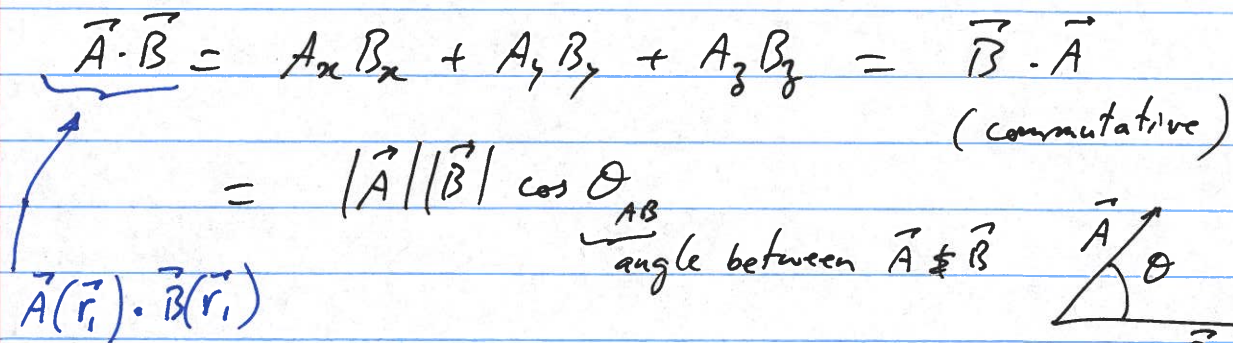 A⃗·B⃗ = AₓBₓ + A_yB_y + A_zB_z = B⃗·A⃗
(commutative)
= |A⃗||B⃗| cos θ_AB
angle between A⃗ & B⃗
A⃗ θ
A⃗(r⃗₁)·B⃗(r⃗₁)